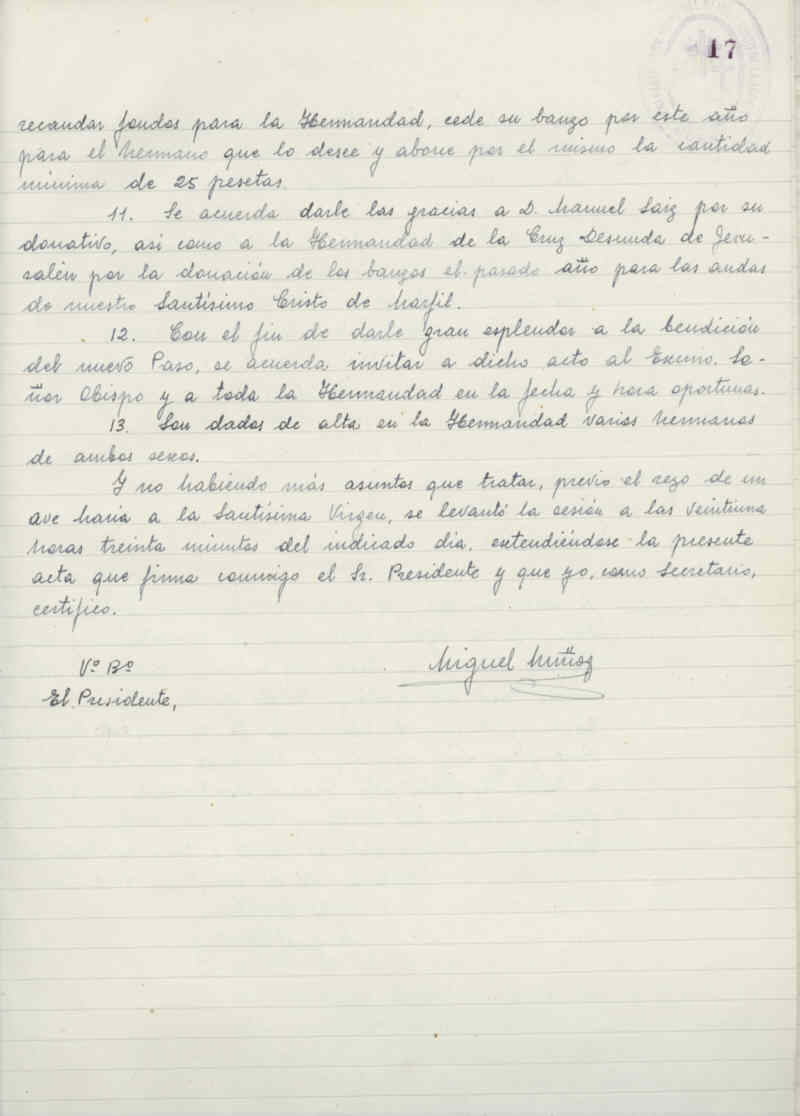 17
recaudar fondos para la Hermandad, cede su banzo por este año
para el hermano que lo desee y abone por el mismo la cantidad
mínima de 25 pesetas.
11. Se acuerda darle las gracias a D. Manuel Saiz por su
donativo, así como a la Hermandad de la Cruz Desnuda de Jeru-
salén por la donación de los banzos el pasado año para las andas
de nuestro Santísimo Cristo de Marfil.
12. Con el fin de darle gran esplendor a la bendición
del nuevo Paso, se acuerda invitar a dicho acto al Excmo. Se-
ñor Obispo y a toda la Hermandad en la fecha y hora oportunas.
13. Son dados de alta en la Hermandad varios hermanos
de ambos sexos.
Y no habiendo más asuntos que tratar, previo el rezo de un
Ave María a la Santísima Virgen, se levantó la sesión a las veintiuna
horas treinta minutos del indicado día, extendiéndose la presente
acta que firma conmigo el Sr. Presidente y que yo, como Secretario,
certifico.
Vº Bº
Miguel Muñoz
El Presidente,